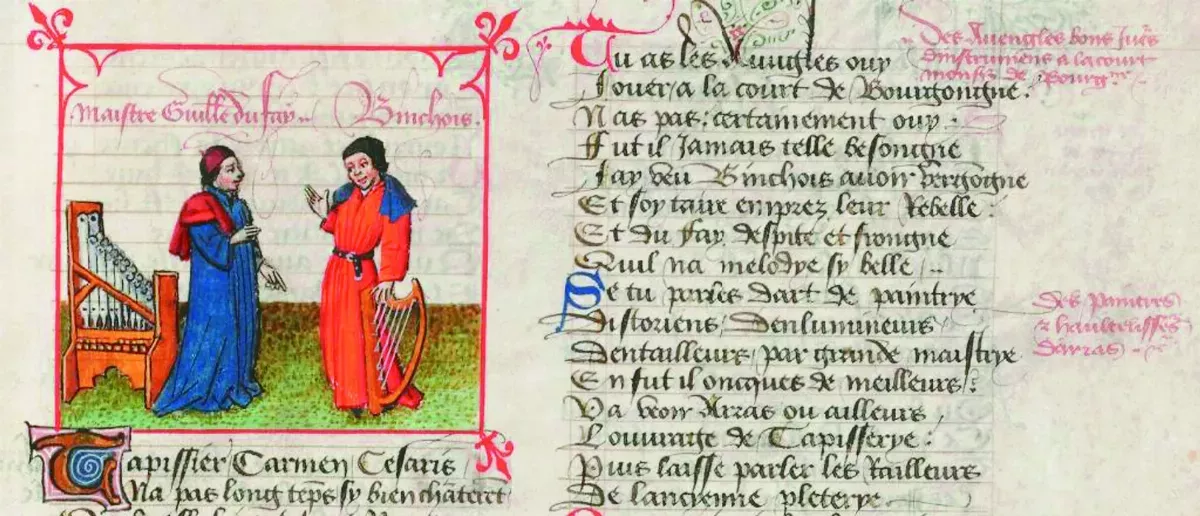 Maistre Guille du fay .. Binchois .
Tapissier / Carmen / Cesaris
Na pas long tēps sy bien chāterēt
Tu as les Avugles ouy
Jouer a la court de Bourgongne .
Nas pas : certainement ouy .
Fut il Jamais telle besongne
Jay veu Binchois avoir vergongne
Et soy taire emprez leur Rebelle .
Et du fay despite et frongne
Quil na melodye sy belle ..
Se tu parles dart de paintrye
Distoriens / Denlumineurs
Dentailleurs / par grande maistrye
En fut il oncques de meilleurs :
Va veoir Arras ou ailleurs
Louvraige de Tapisserye :
Puis laisse parler les Railleurs
De lancienne pleterye
Des Avengles bons Jués
dinstrumens a la court
monsr de Bourgne
Des paintres
& haultelisses
darras ..